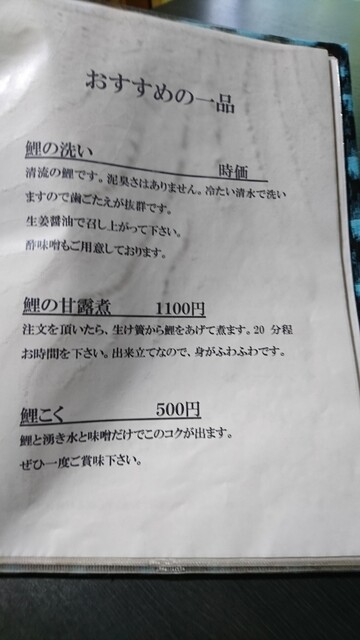 おすすめの一品
鯉の洗い 時価
清流の鯉です。泥臭さはありません。冷たい清水で洗い
ますので歯ごたえが抜群です。
生姜醤油で召し上がって下さい。
酢味噌もご用意しております。
鯉の甘露煮 1100円
注文を頂いたら、生け簀から鯉をあげて煮ます。20 分程
お時間を下さい。出来立てなので、身がふわふわです。
鯉こく 500円
鯉と湧き水と味噌だけでこのコクが出ます。
ぜひ一度ご賞味下さい。